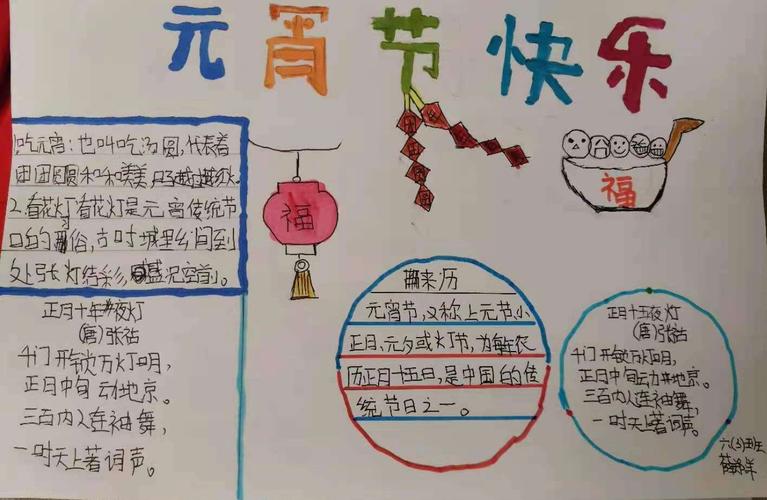 元宵节快乐
吃元宵:也叫吃汤圆,代表着
团团圆圆和和美美,日子越过越红火
2.看花灯看花灯是元宵传统节
日的习俗,古时城里乡间到
处张灯结彩,盛况空前。
福
福
正月十五夜灯
(唐)张祜
千门开锁万灯明,
正月中旬动地京。
三百内人连袖舞,
一时天上著词声。
来历
元宵节,又称上元节、小
正月、元夕或灯节,为每年农
历正月十五日,是中国的传
统节日之一。
正月十五夜灯
(唐)张祜
千门开锁万灯明,
正月中旬动地京。
三百内人连袖舞,
一时天上著词声。
六(3)班